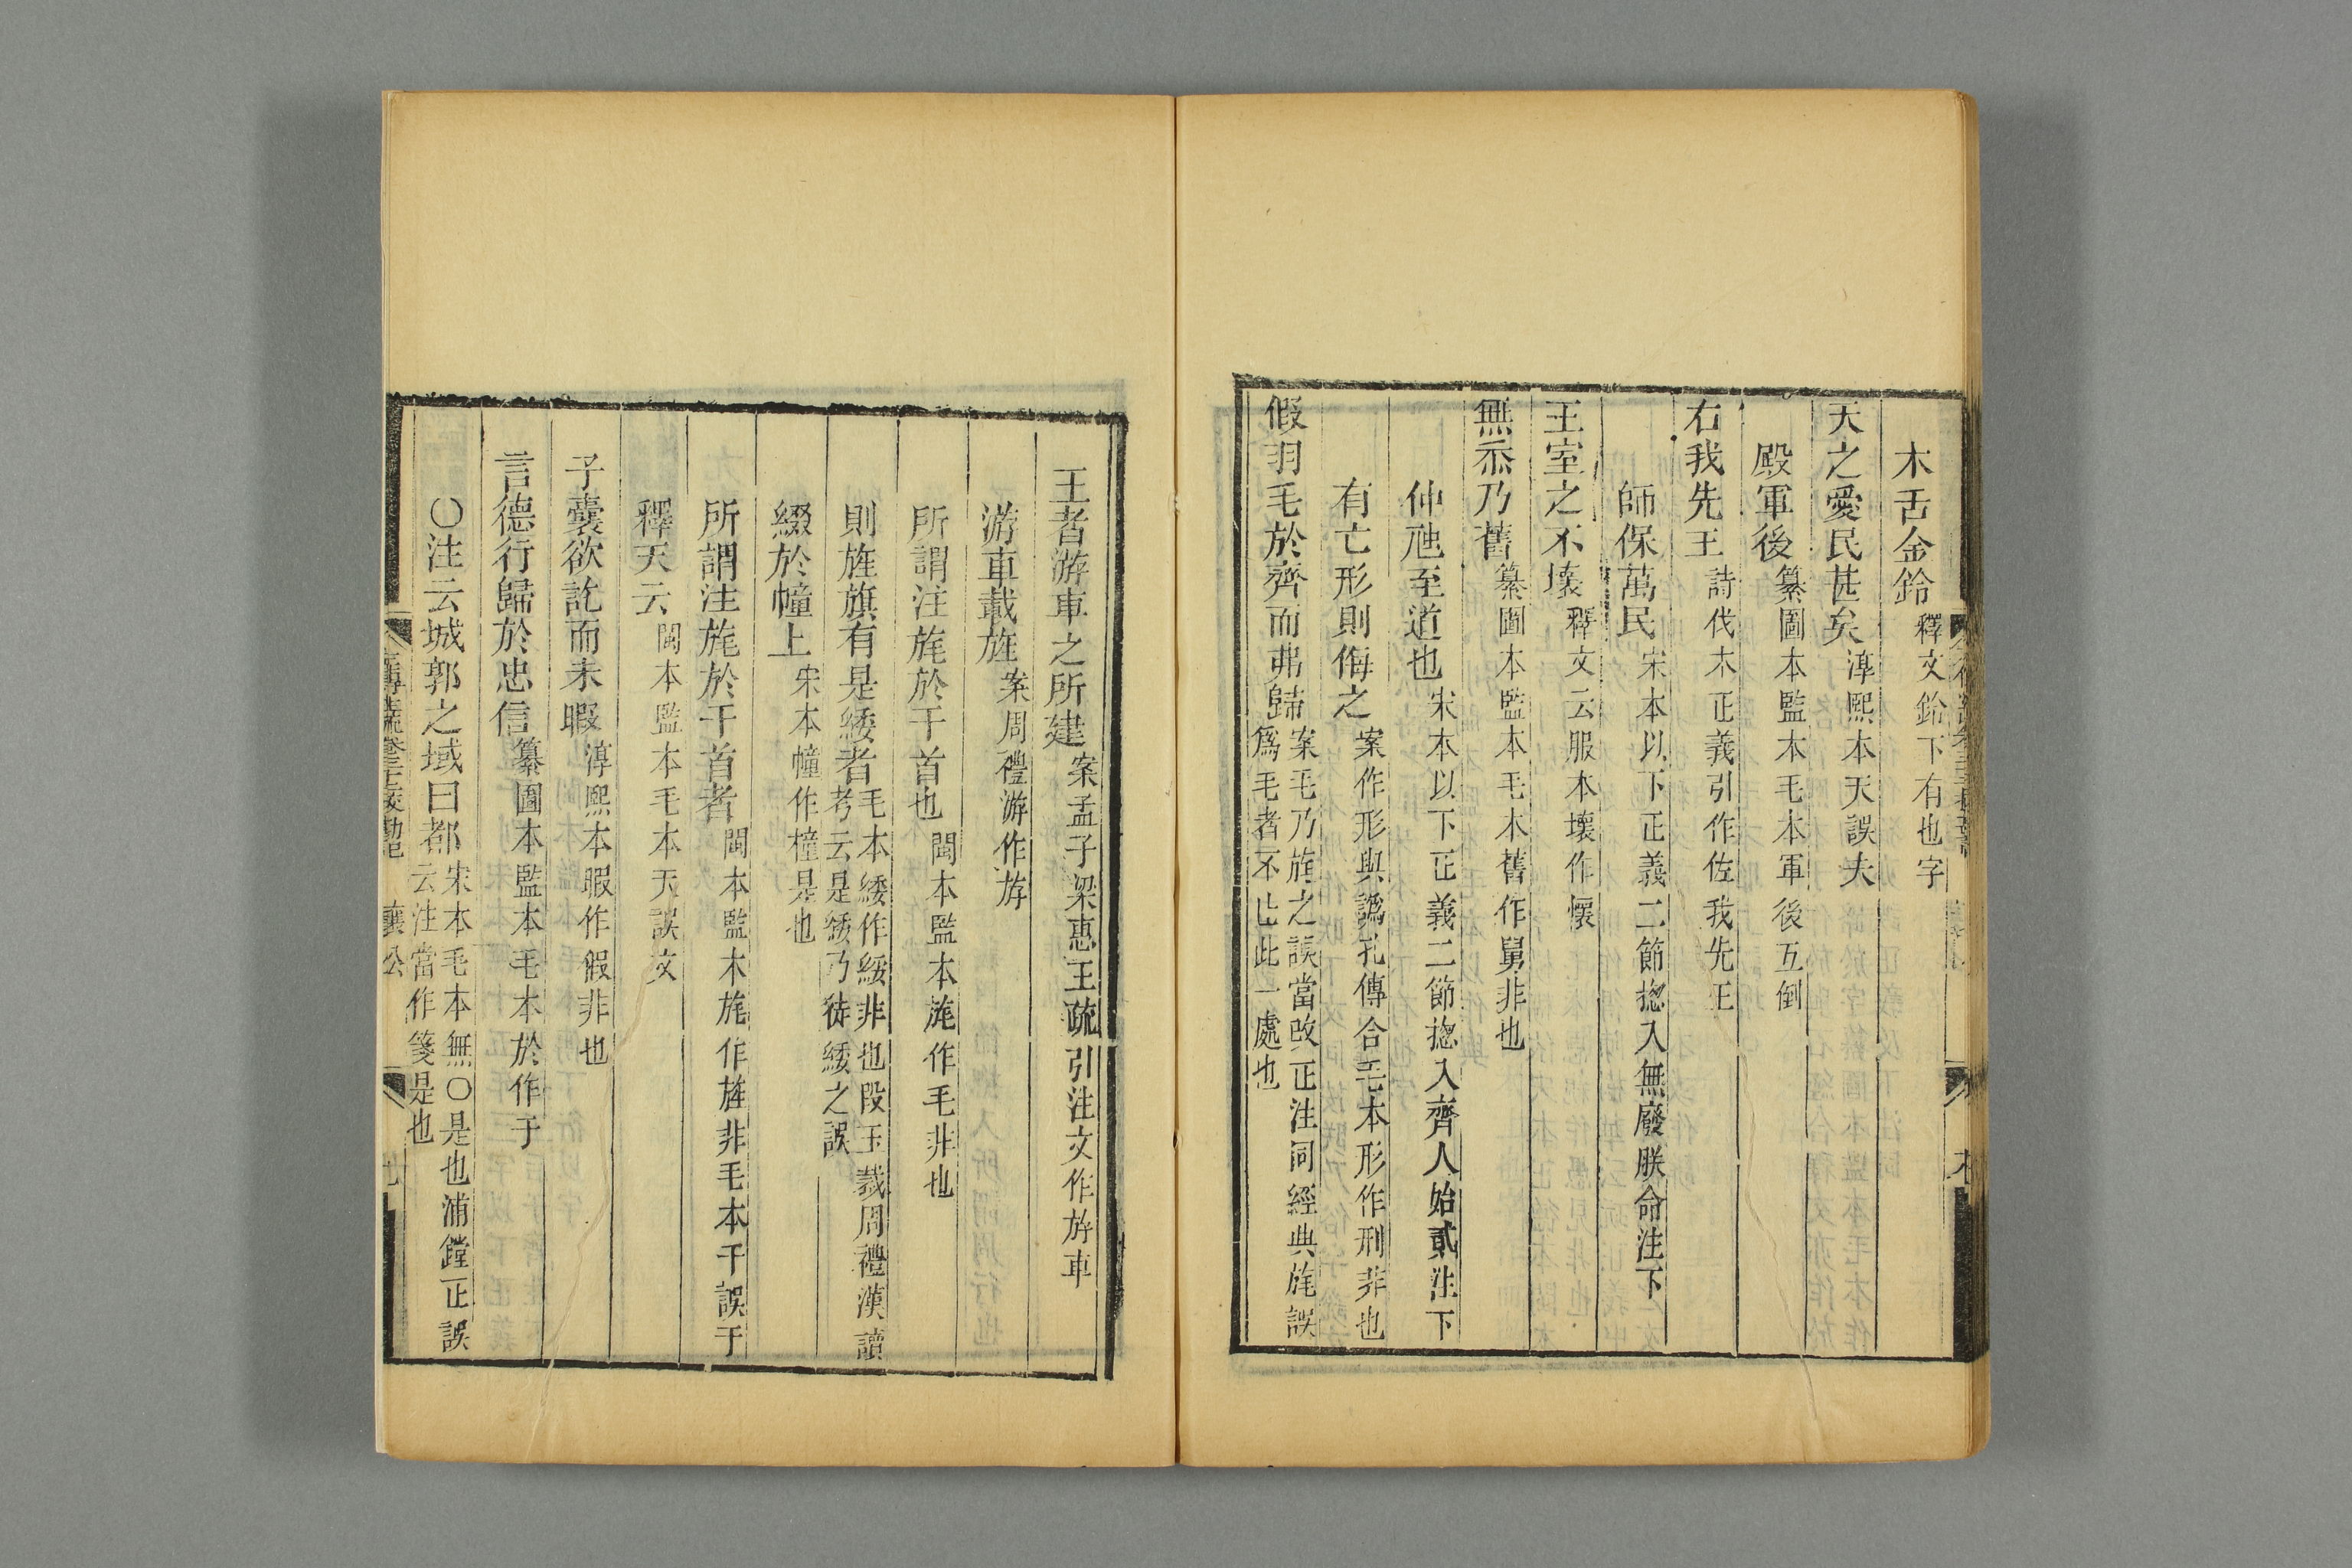 木舌金鈴釋文鈴下有也字
天之愛民甚矣淳熙本天誤夫
殿軍後纂圖本監本毛本軍後互倒
右我先王詩伐木正義引作佐我先王
師保萬民宋本以下正義二節揔入無廢朕命注下
王室之不壞釋文云服本壞作懷
無忝乃舊纂圖本監本毛本舊作舅非也
仲虺至道也宋本以下正義二節揔入齊人始貳注下
有亡形則侮之案作形與譌孔傳合毛本形作刑非也
假羽毛於齊而弗歸案毛乃旄之誤當改正注同經典旄誤
爲毛者不止此一處也
王者游車之所建案孟子梁惠王疏引注文作斿車
游車載旌案周禮游作斿
所謂注旄於干首也閩本監本旄作毛非也
則旌旗有是綏者毛本綏作綏非也段玉裁周禮漢讀
考云是綏乃徒綏之誤
綴於幢上宋本幢作橦是也
所謂注旄於干首者閩本監本旄作旌非毛本干誤于
釋天云閩本監本毛本天誤文
子囊欲訖而未暇淳熙本暇作假非也
言德行歸於忠信纂圖本監本毛本於作于
〇注云城郭之域曰都宋本毛本無〇是也浦鏜正誤
云注當作箋是也